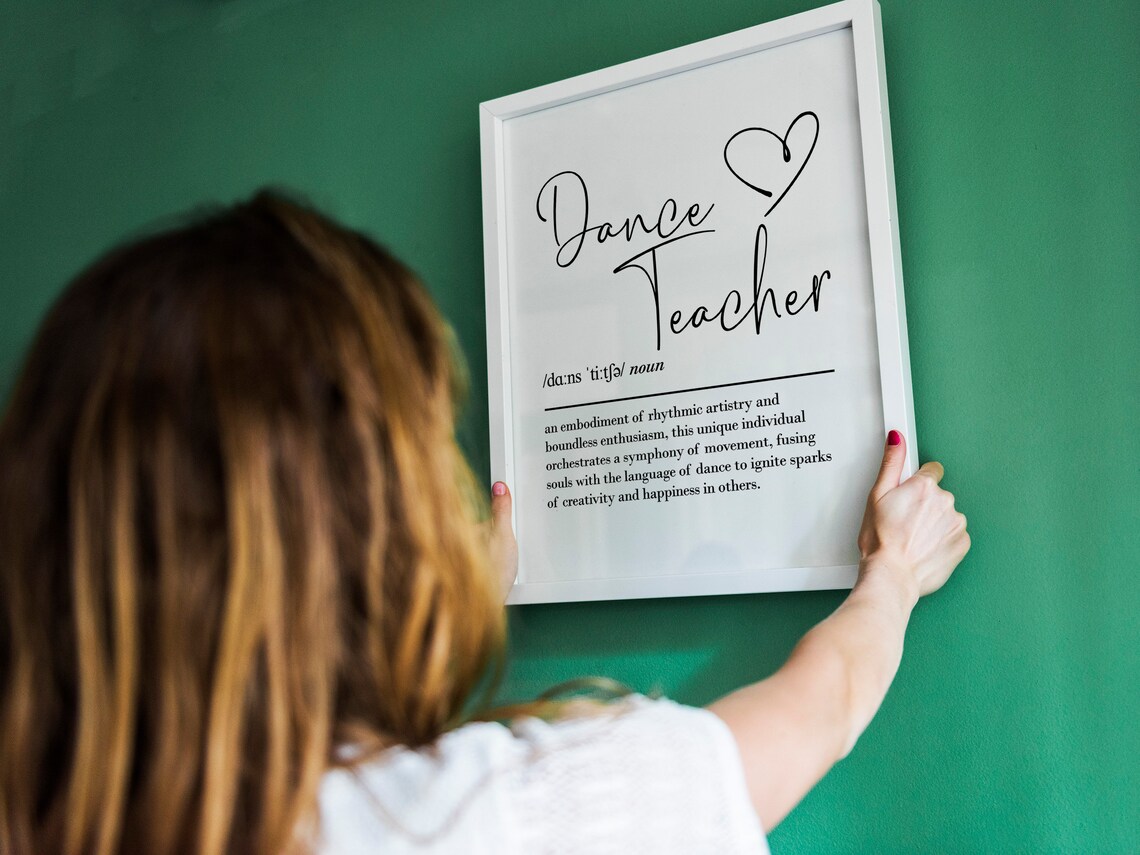 Dance
Teacher
/dɑːns ˈtiːtʃə/ noun
an embodiment of rhythmic artistry and
boundless enthusiasm, this unique individual
orchestrates a symphony of movement, fusing
souls with the language of dance to ignite sparks
of creativity and happiness in others.